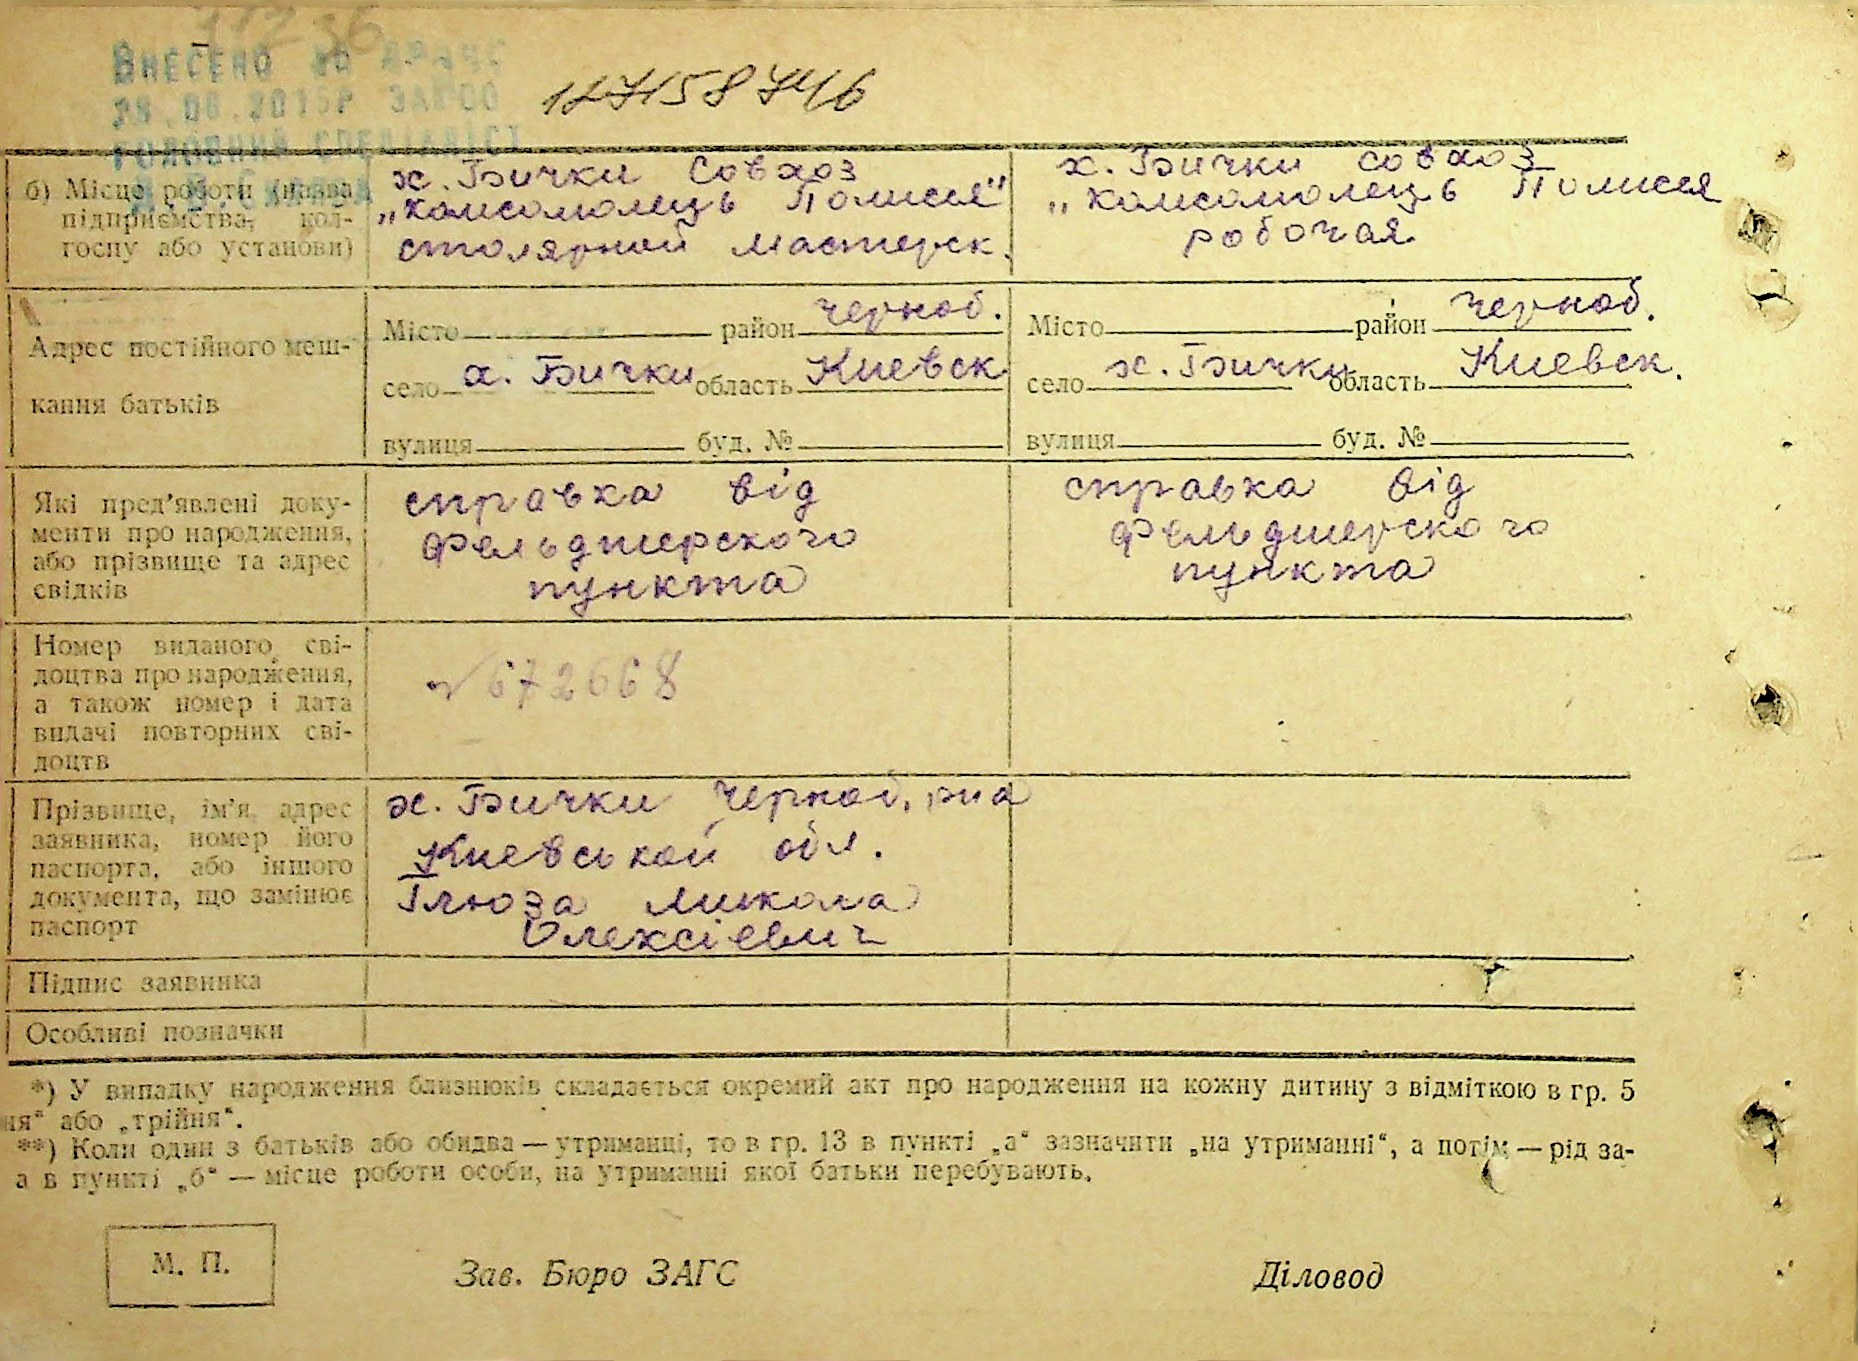 11236
ВНЕСЕНО ДО ДРАЦС
28.08.2015Р ЗАПОО
ГОЛОВНИЙ СПЕЦІАЛІСТ
127158746
б) Місце роботи (назва
підприємства, кол-
госпу або установи)
х. Бички Совхоз
„Комсомолець Полисья"
столярной мастерск.
х. Бички совхоз
„Комсомолець Полисся
робочая
Адрес постійного меш-
кання батьків
Місто район черноб.
село х. Бички область Киевск
вулиця буд. №
Місто район черноб.
село х. Бички область Киевск.
вулиця буд. №
Які пред'явлені доку-
менти про народження,
або прізвище та адрес
свідків
справка від
Фельдшерского
пункта
справка від
Фельдшерского
пункта
Номер виданого сві-
доцтва про народження,
а також номер і дата
видачі повторних сві-
доцтв
№672668
Прізвище, ім'я, адрес
заявника, номер його
паспорта, або іншого
документа, що замінює
паспорт
х. Бички Черноб. рна
Киевськой обл.
Глюза Микола
Олексієвич
Підпис заявника
Особливі позначки
*) У випадку народження близнюків складається окремий акт про народження на кожну дитину з відміткою в гр. 5
ня" або „трійня".
**) Коли один з батьків або обидва — утриманці, то в гр. 13 в пункті „а" зазначити „на утриманні", а потім — рід за-
а в пункті „б" — місце роботи особи, на утриманні якої батьки перебувають.
М. П.
Зав. Бюро ЗАГС
Діловод